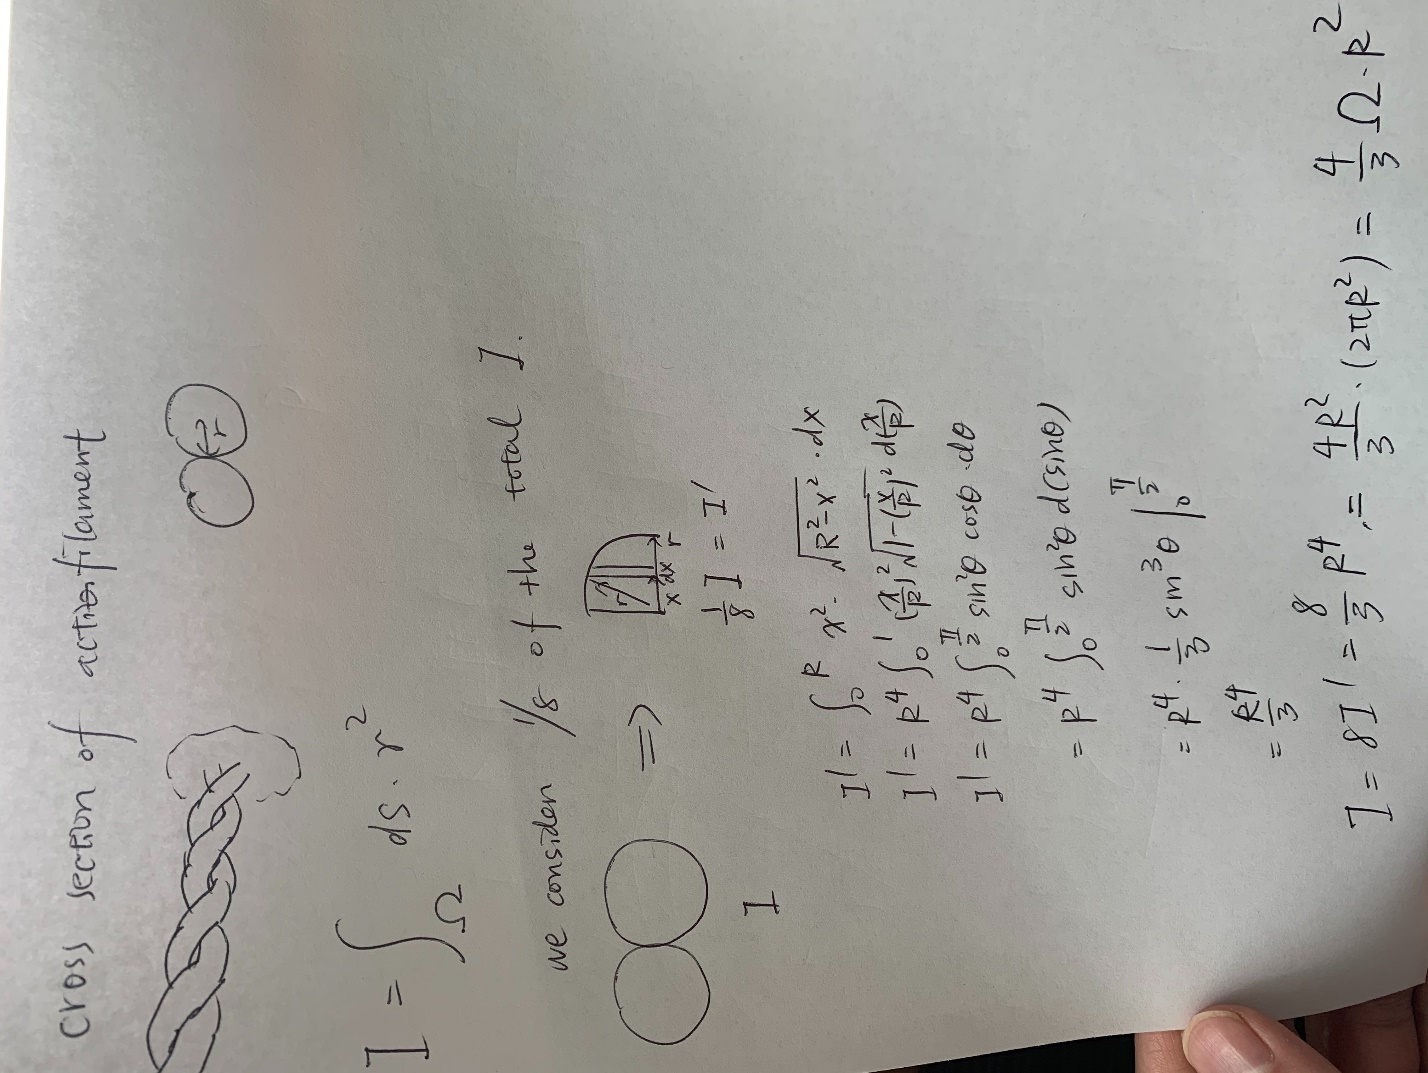 cross section of actin filament
r
I = ∫_Ω ds · r²
we consider 1/8 of the total I.
⇒
r
x dx r
I
1/8 I = I'
I' = ∫₀^R x² · √(R²−x²) · dx
I' = R⁴ ∫₀^1 (x/R)² √(1−(x/R)²) d(x/R)
I' = R⁴ ∫₀^(π/2) sin²θ cosθ · dθ
= R⁴ ∫₀^(π/2) sin²θ d(sinθ)
= R⁴ · 1/3 sin³θ |₀^(π/2)
= R⁴/3
I = 8I' = 8/3 R⁴ = 4R²/3 · (2πR²) = 4/3 Ω·R²